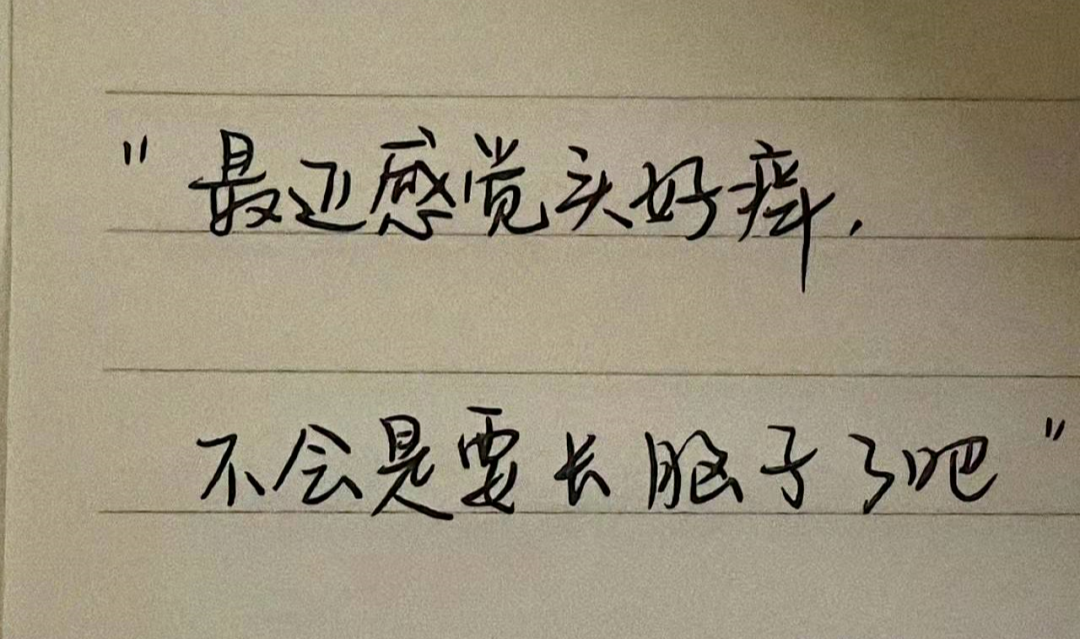 "最近感觉头好痒,
不会是要长脑子了吧"